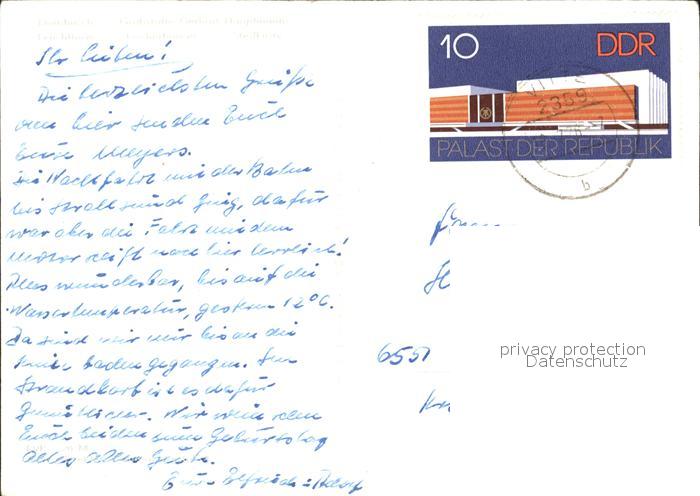 Ihr Lieben!
Die herzlichsten Grüße
von hier senden Euch
Eure Meyers.
Die Nachtfahrt mit der Bahn
bis Stralsund ging, dafür
war aber die Fahrt mit dem
Motorschiff nach hier herrlich!
Alles wunderbar, bis auf die
Wassertemperatur, gestern 12°C.
Da sind wir nur bis an die
Knie baden gegangen. Im
Strandkorb ist es dafür
gemütlicher. Wir wünschen
Euch beiden zum Geburtstag
alles alles Gute.
Eure Elfriede + Adolf
10 DDR
PALAST DER REPUBLIK
2389
b
6551
privacy protection
Datenschutz